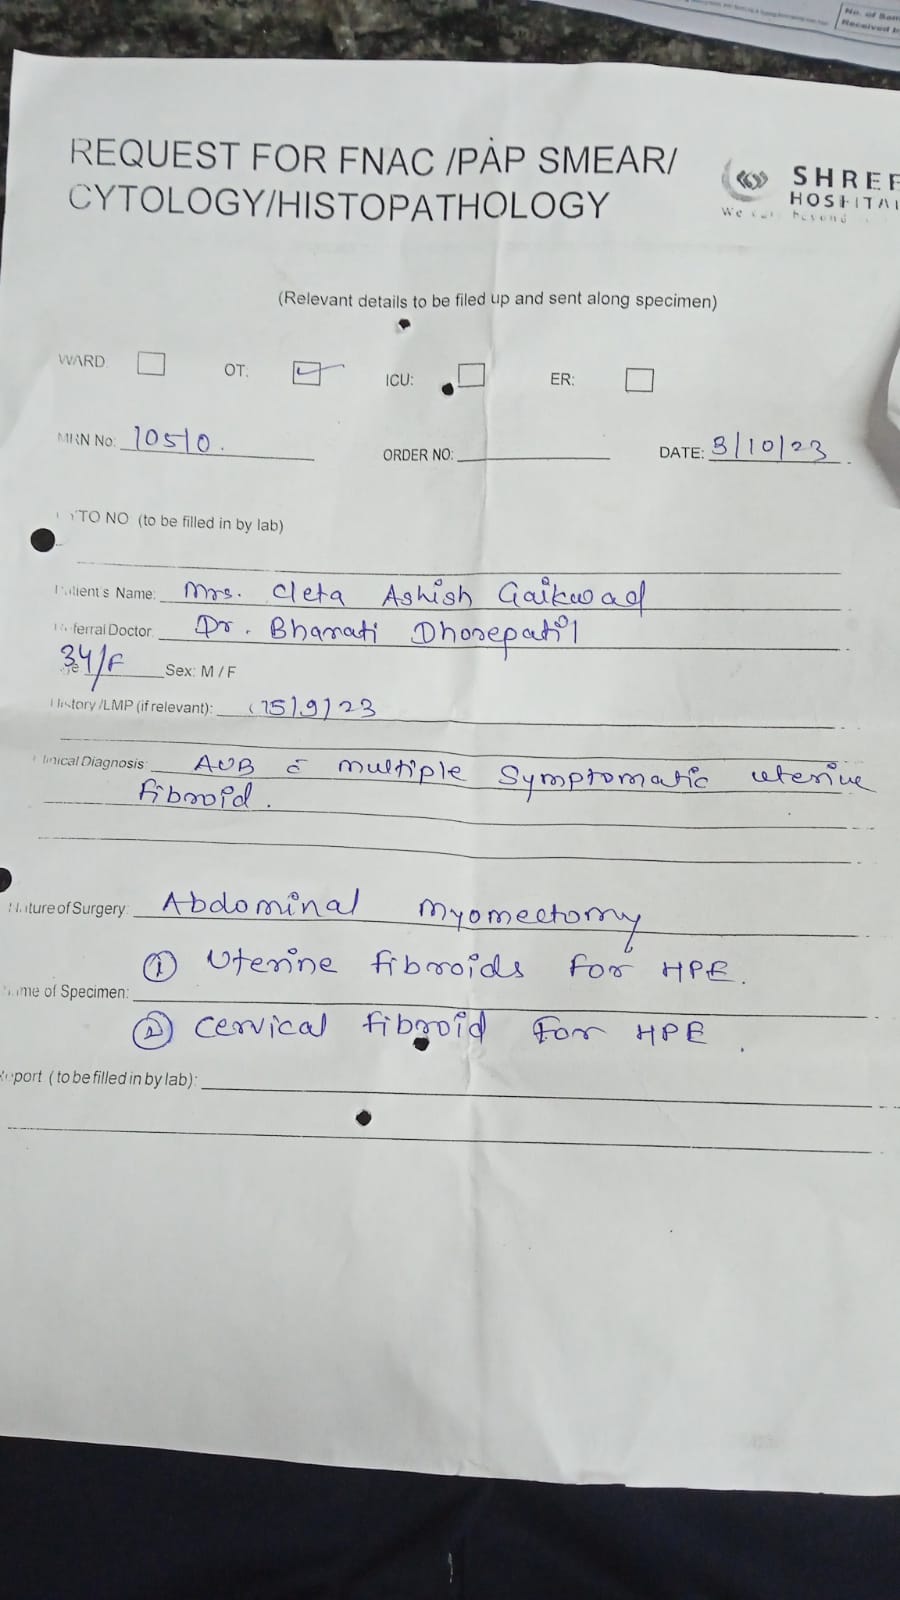 No. of Sam
Received b
REQUEST FOR FNAC /PAP SMEAR/
CYTOLOGY/HISTOPATHOLOGY
SHREE
HOSPITAL
We beyond
(Relevant details to be filed up and sent along specimen)
WARD OT: ICU: ER:
MRN No: 10510. ORDER NO: DATE: 3/10/23
YTO NO (to be filled in by lab)
Patient's Name: Mrs. Cleta Ashish Gaikwad
Referral Doctor Dr. Bharati Dhorepatil
34/F Sex: M / F
History /LMP (if relevant): 15/9/23
Clinical Diagnosis: AUB c̄ multiple Symptomatic uterine
fibroid.
Nature of Surgery: Abdominal Myomectomy
① Uterine fibroids for HPE.
Name of Specimen:
② Cervical fibroid for HPE.
Report (to be filled in by lab):